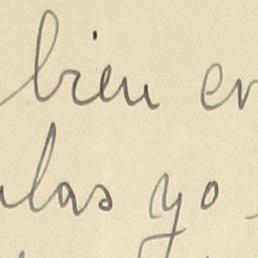 bien en
las yo